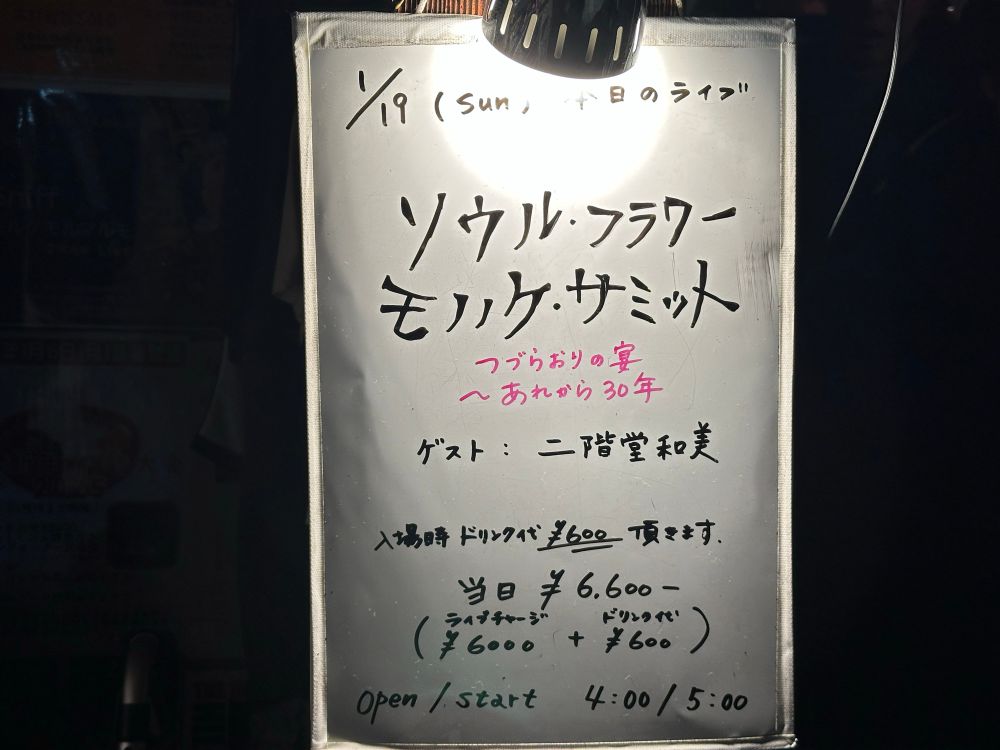 1/19 (sun) 本日のライブ
ソウル・フラワー
モノノケ・サミット
つづらおりの宴
〜あれから30年
ゲスト: 二階堂和美
入場時ドリンク代 ¥600 頂きます.
当日 ¥6,600-
ライブチャージ ドリンク代
(¥6000 + ¥600)
open / start 4:00 / 5:00